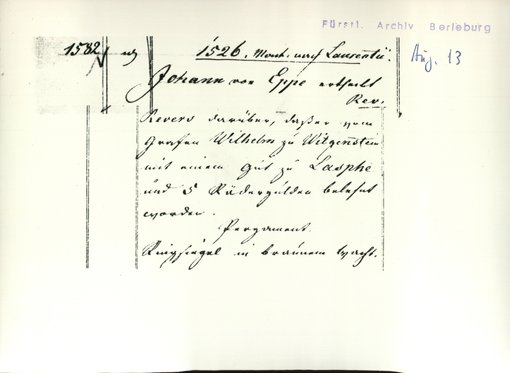 Fürstl. Archiv Berleburg
1582 1526. Mont. nach Laurentii. Aug. 13
Johann von Eppe ertheilt
Rev.
Revers darüber, daß er vom
Grafen Wilhelm zu Witgenstein
mit einem Gut zu Lasphe
und 5 Rädergülden belehnt
worden.
Pergament.
Ringsiegel in braunem Wachs.